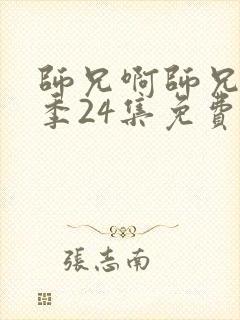 師兄啊師兄
季24集免費
張志南